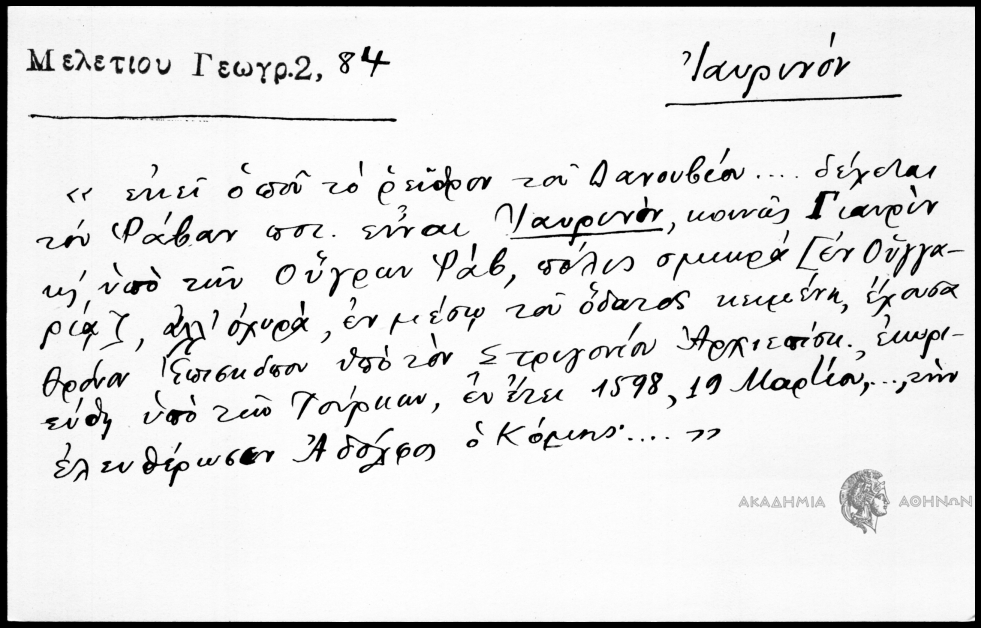 Μελετιου Γεωγρ.2, 84
Ἰαυρινόν
« ἐκεῖ ὁποῦ τό ῥεῖθρον τοῦ Δανουβίου .... δέχεται
τόν Ῥάβαν ποτ. εἶναι Ἰαυρινὸν, κοινῶς Γιαυρίν
κ', ὑπό τῶν Οὔγρων Ῥάβ, πόλις σμικρά [ἐν Οὐγγα-
ρίᾳ], ἀλλ' ὀχυρὰ, ἐν μέσῳ τοῦ ὕδατος κειμένη, ἔχουσα
θρόνον Ἐπισκόπου ὑπό τόν Στριγονίου Ἀρχιεπίσκ.,
εύθη ὑπό τῶν Τούρκων, ἐν ἔτει 1598, 19 Μαρτίου,...,τὴν
ἐλευθέρωσεν Ἀδόλφος ὁ Κόμης .... »
ΑΚΑΔΗΜΙΑ ΑΘΗΝΩΝ